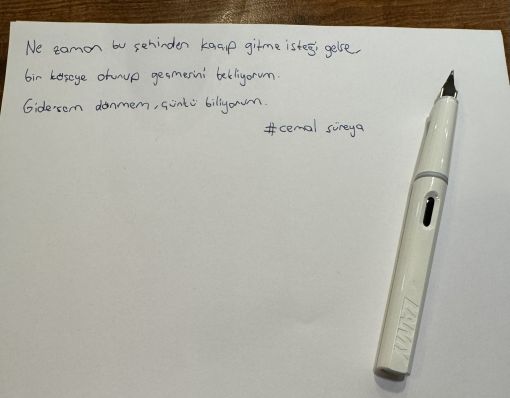 Ne zaman bu şehirden kaçıp gitme isteği gelse,
bir köşeye oturup geçmesini bekliyorum.
Gidersem dönmem, çünkü biliyorum.
#cemal süreya
LAMY